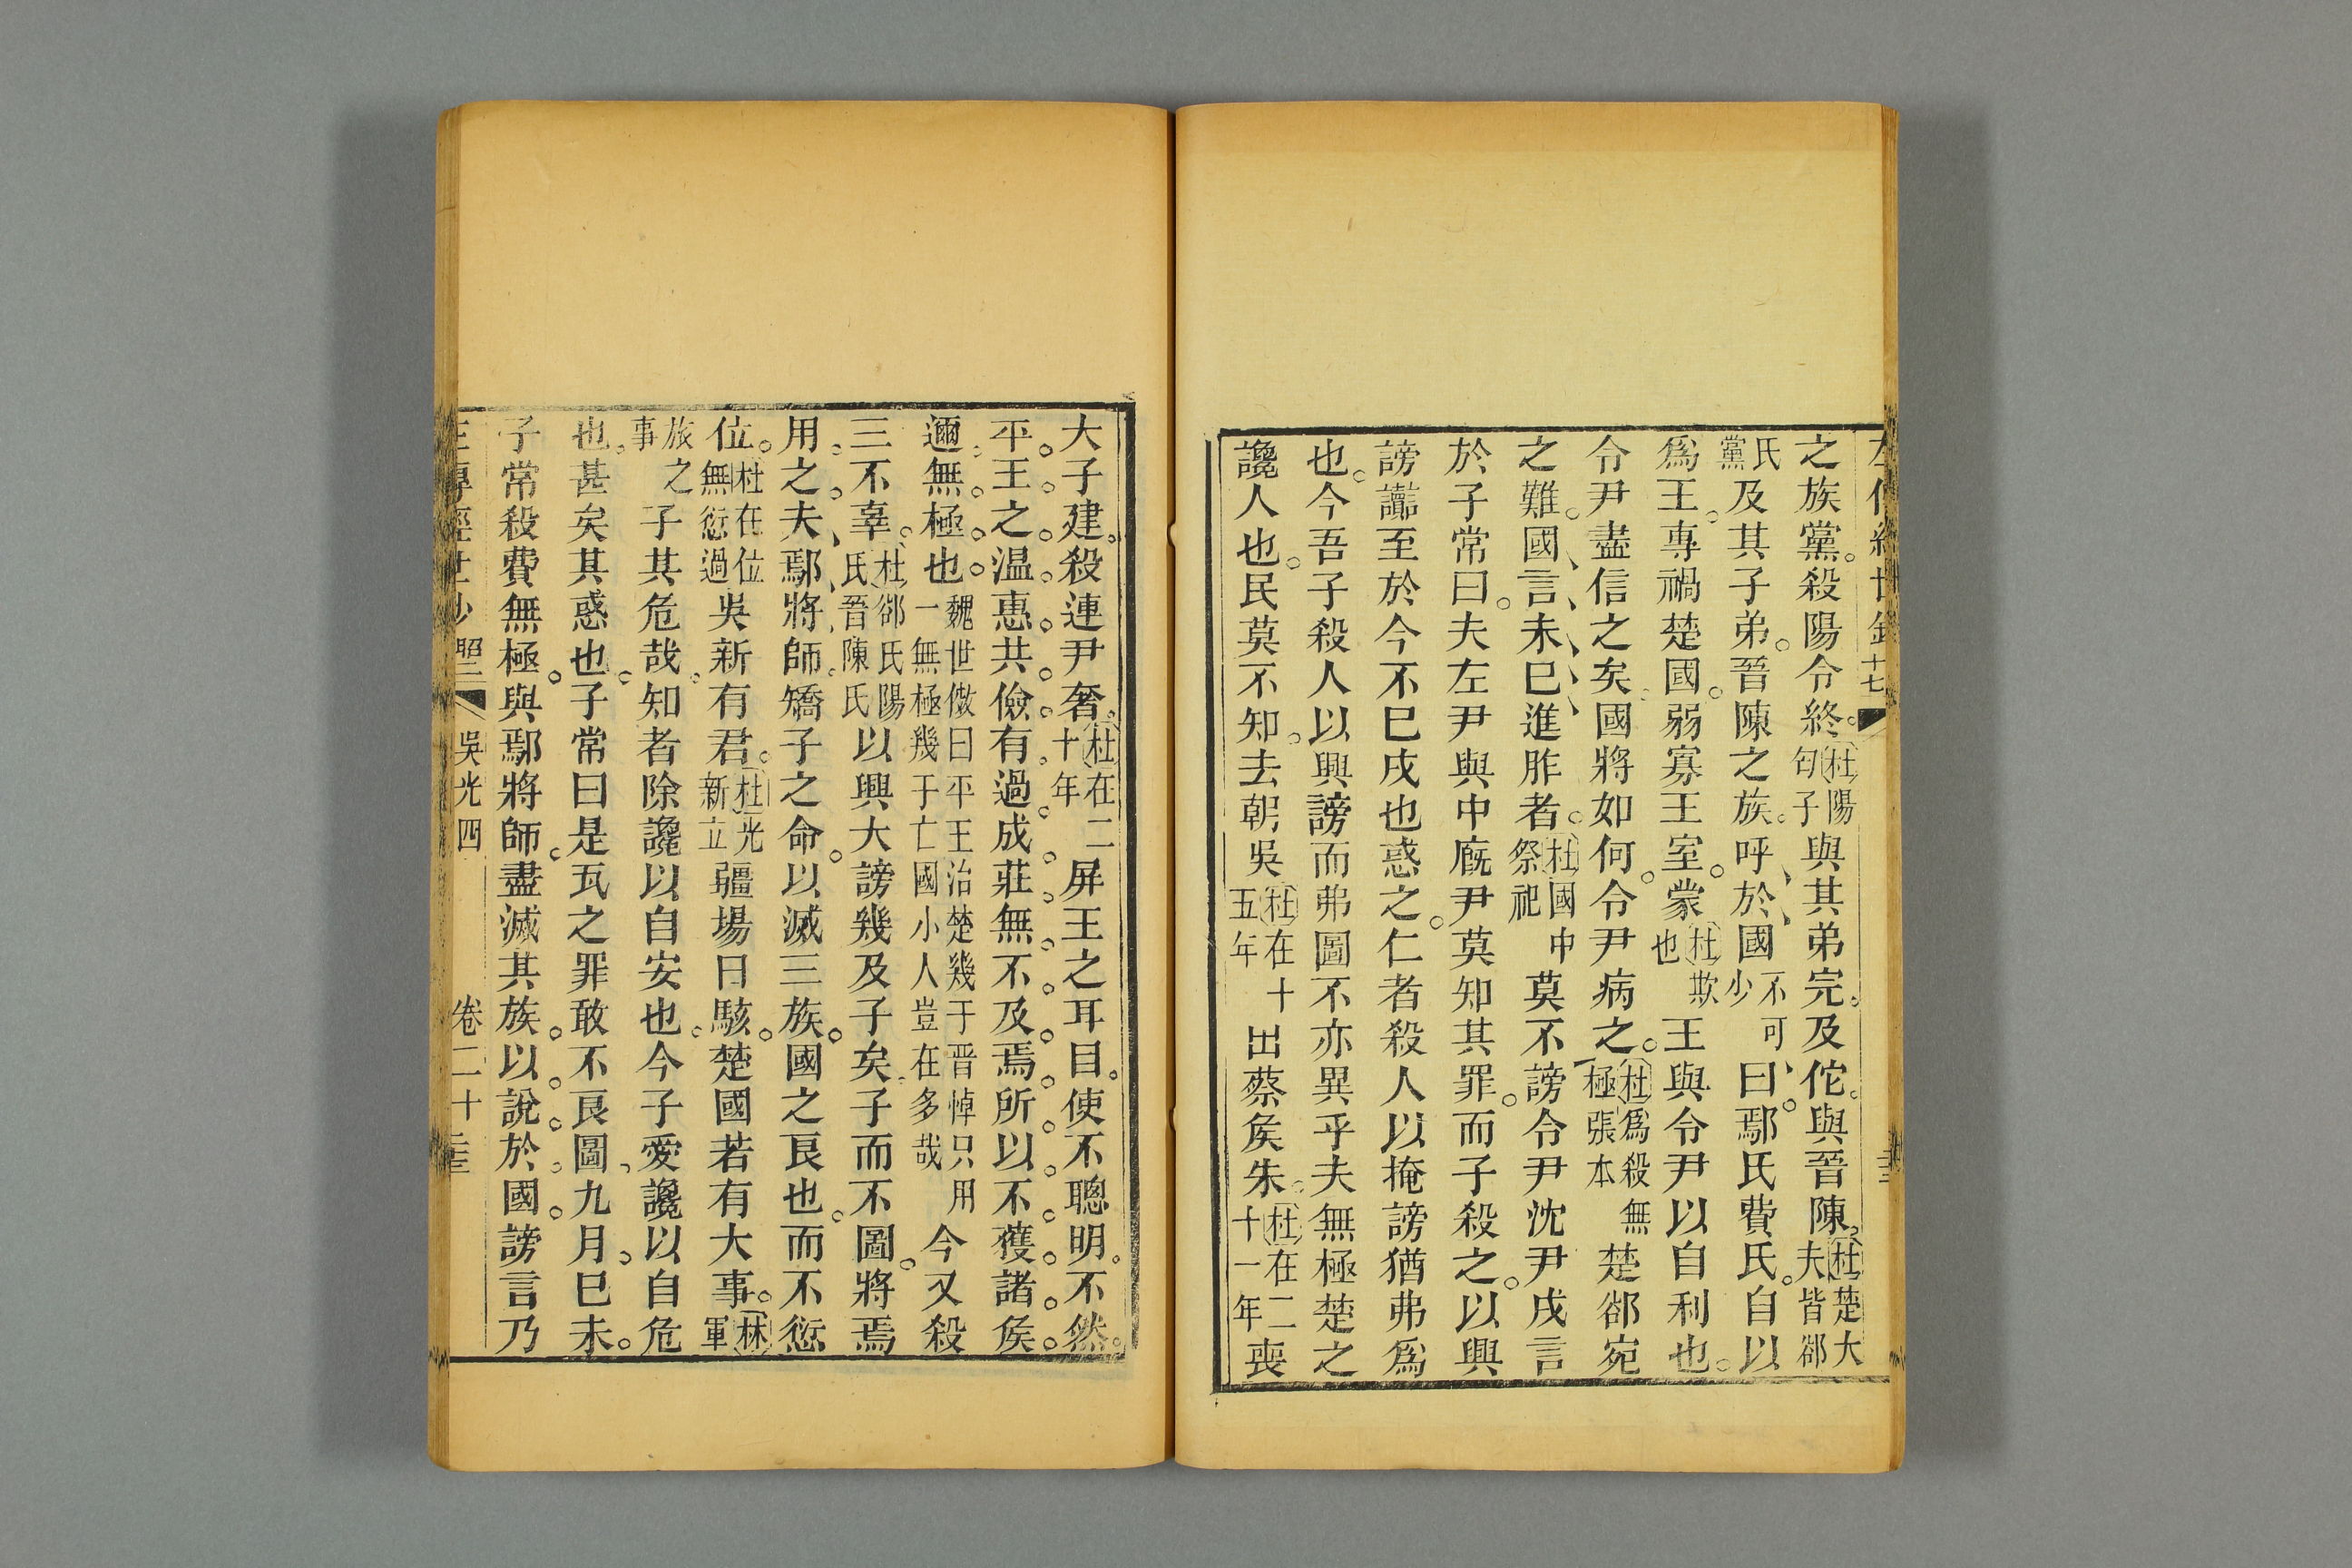 之族黨。殺陽令終。杜陽匄子與其弟完。及佗。與晉陳。杜楚大夫皆郤
氏黨及其子弟。晉陳之族。呼於國不可少曰。鄢氏費氏。自以
爲王。專禍楚國。弱寡王室。蒙杜欺也王與令尹以自利也。
令尹盡信之矣。國將如何。令尹病之。杜爲殺無極張本楚郤宛
之難。國言未巳進胙者。杜國中祭祀莫不謗令尹沈尹戌言
於子常曰。夫左尹與中廐尹莫知其罪。而子殺之。以興
謗讟至於今不巳戌也惑之。仁者殺人以掩謗猶弗爲
也。今吾子殺人以興謗而弗圖不亦異乎夫無極楚之
讒人也。民莫不知。去朝吳杜在十五年出蔡矦朱。杜在二十一年喪
大子建。殺連尹奢。杜在二十年屏王之耳目。使不聰明。不然。
平。王。之。温。惠。共。儉。有。過。成。莊。無。不。及。焉。所。以。不。獲。諸。矦。
邇。無。極。也。魏世俶曰平王治楚幾于晋悼只用一無極幾于亡國小人豈在多哉今又殺
三不辜。杜郤氏陽氏晉陳氏以興大謗幾及子矣。子而不圖。將焉
用。之。夫鄢將師。矯子之命。以滅三族。國之良也。而不愆
位。杜在位無愆過吳新有君。杜光新立疆場日駭。楚國若有大事。林軍
旅之事子其危哉。知者除讒以自安也。今子愛讒以自危
也。甚矣其惑也。子常曰是瓦之罪敢不良圖。九月。巳未。
子常殺費無極。與鄢將師。盡滅其族。以。說。於。國。謗言乃
吳光四
卷二十三